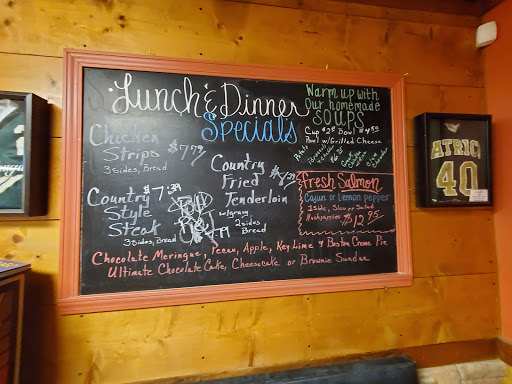 Lunch & Dinner
Specials
Warm up with
Our homemade
SOUPS
Cup $2.95 Bowl $4.95
Bowl w/Grilled Cheese
Chicken
Strips $7.79
3 sides, Bread
Country
Fried
Tenderloin
w/gravy
2 sides
Bread
Country $7.39
Style
Steak
3 sides, Bread
Fresh Salmon
Cajun or Lemon pepper
1 side, Slaw or Salad
Hushpuppies $12.95
Chocolate Meringue, Pecan, Apple, Key Lime & Boston Creme Pie
Ultimate Chocolate Cake, Cheesecake or Brownie Sundae
ATRIC
40